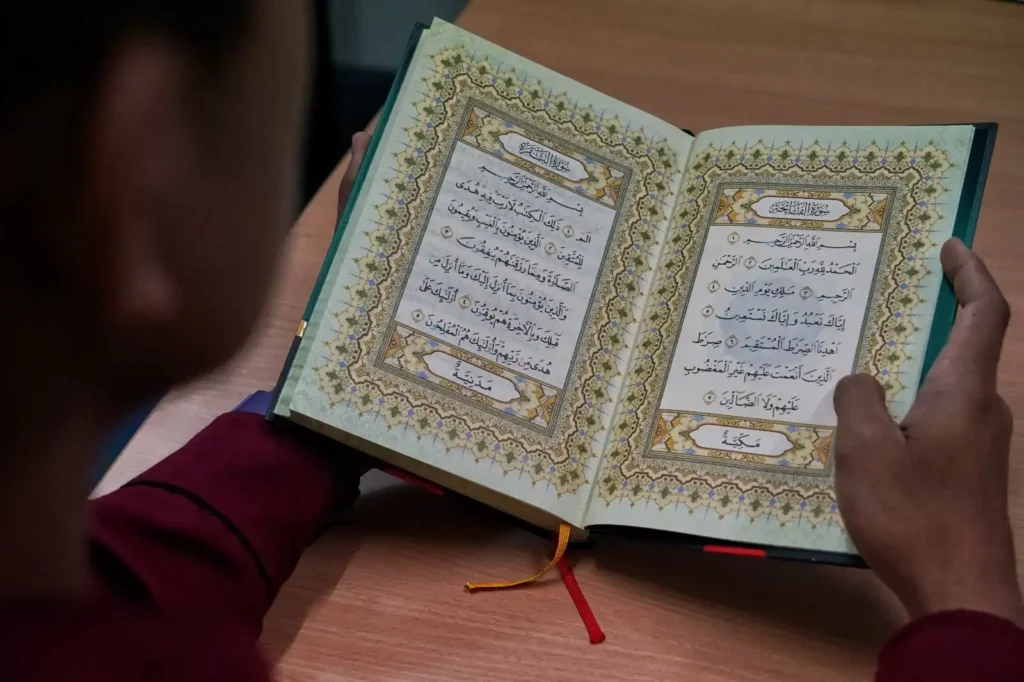 سُورَةُ الْفَاتِحَةِ
بِسْمِ اللَّهِ الرَّحْمَٰنِ الرَّحِيمِ ١
الْحَمْدُ لِلَّهِ رَبِّ الْعَٰلَمِينَ ٢ الرَّحْمَٰنِ
الرَّحِيمِ ٣ مَٰلِكِ يَوْمِ الدِّينِ ٤
إِيَّاكَ نَعْبُدُ وَإِيَّاكَ نَسْتَعِينُ ٥
اهْدِنَا الصِّرَٰطَ الْمُسْتَقِيمَ ٦ صِرَٰطَ
الَّذِينَ أَنْعَمْتَ عَلَيْهِمْ غَيْرِ الْمَغْضُوبِ
عَلَيْهِمْ وَلَا الضَّالِّينَ ٧
مَكِّيَّةٌ
سُورَةُ الْبَقَرَةِ
بِسْمِ اللَّهِ الرَّحْمَٰنِ الرَّحِيمِ
الٓمٓ ١ ذَٰلِكَ الْكِتَٰبُ لَا رَيْبَ فِيهِ هُدًى
لِّلْمُتَّقِينَ ٢ الَّذِينَ يُؤْمِنُونَ بِالْغَيْبِ وَيُقِيمُونَ
الصَّلَوٰةَ وَمِمَّا رَزَقْنَٰهُمْ يُنفِقُونَ ٣
وَالَّذِينَ يُؤْمِنُونَ بِمَا أُنزِلَ إِلَيْكَ وَمَا أُنزِلَ مِن
قَبْلِكَ وَبِالْآخِرَةِ هُمْ يُوقِنُونَ ٤ أُولَٰئِكَ عَلَىٰ
هُدًى مِّن رَّبِّهِمْ وَأُولَٰئِكَ هُمُ الْمُفْلِحُونَ ٥
مَدَنِيَّةٌ